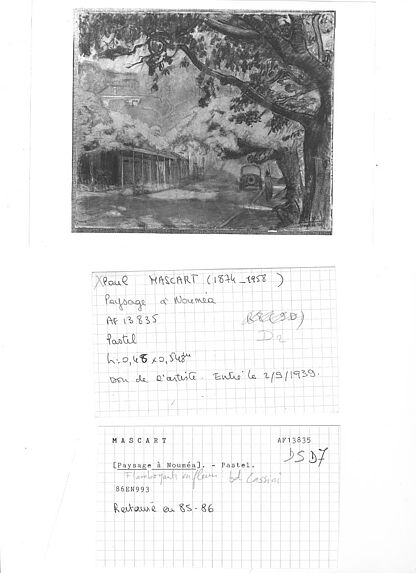 Paul MASCART (1874_1958)
Paysage à Nouméa
AF 13835
D2
Pastel
h: 0,45 x 0,548
Don de l'artiste. Entré le 2/9/1939.
MASCART AF13835
DS D7
[Paysage à Nouméa]. - Pastel.
Flamboyants en fleurs bd Cassini
86EN993
Restauré en 85-86